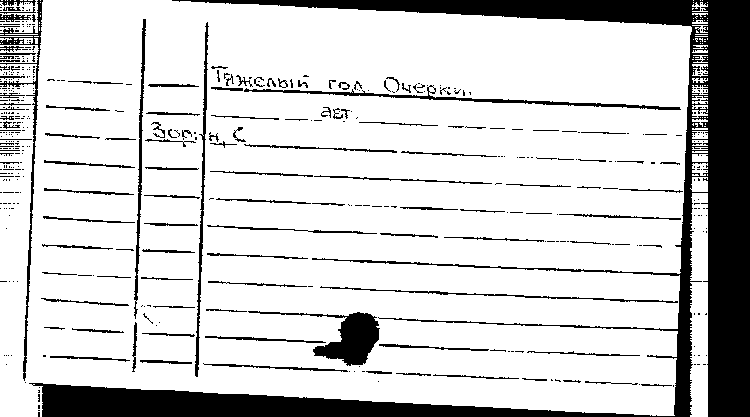 Тяжелый год. Очерки.
авт.
Зорин, С